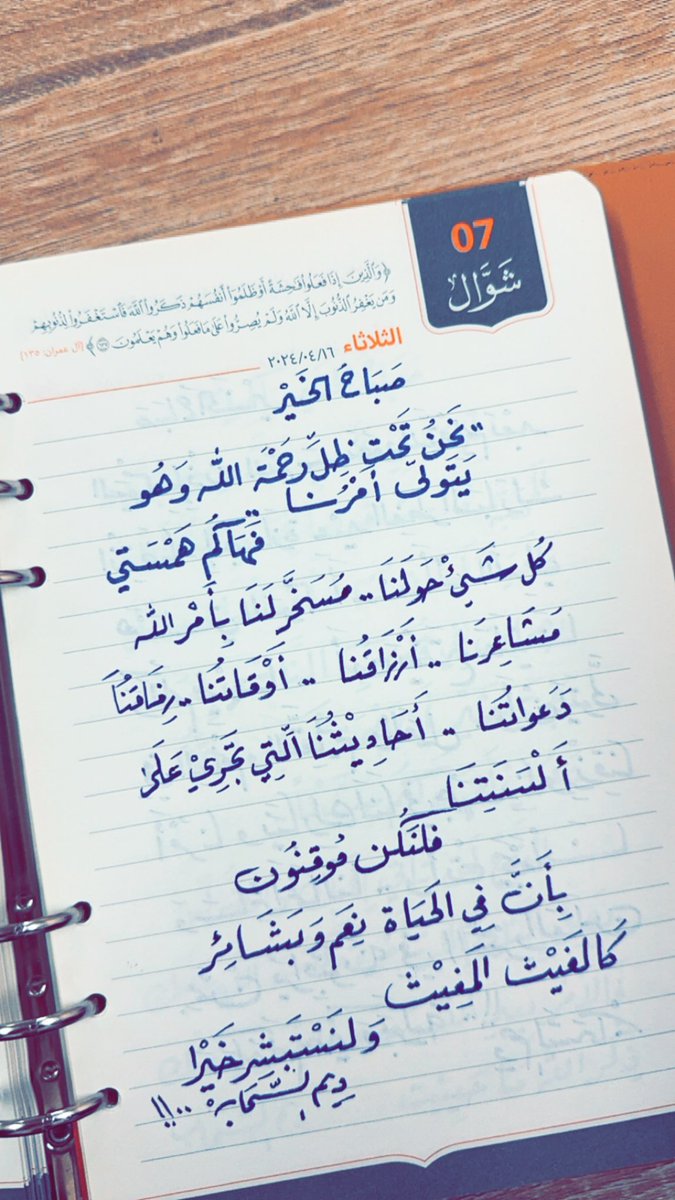 07
شَوَّال
﴿وَالَّذِينَ إِذَا فَعَلُوا فَاحِشَةً أَوْ ظَلَمُوا أَنفُسَهُمْ ذَكَرُوا اللَّهَ فَاسْتَغْفَرُوا لِذُنُوبِهِمْ
وَمَن يَغْفِرُ الذُّنُوبَ إِلَّا اللَّهُ وَلَمْ يُصِرُّوا عَلَىٰ مَا فَعَلُوا وَهُمْ يَعْلَمُونَ ١٣٥﴾ [آل عمران: ١٣٥]
الثلاثاء
٢٠٢٤/٠٤/١٦
صَبَاحُ الخَيْر
"نَحْنُ تَحْتَ ظِلِّ رَحْمَة الله وَهُو
يَتَولّى أَمْرُنَا"
فَهَاكُم هَمْسَتي
كُل شَيْئ حَولَنَا.. مُسَخَّر لَنَا بِأَمْر الله
مَشَاعِرَنَا .. أَرْزَاقُنا .. أَوْقَاتُنا.. رِفَاقنُا
دَعَواتُنا .. أَحَادِيْثُنَا الّتِي تَجْرِيْ عَلَى
أَلْسَنَتِنَا
فلنَكُن مُوقِنُون
بِأَنَّ فِي الحَيَاة نِعَم وَبَشَائِر
كَالغَيْث المَغِيْث
وَلنَسْتَبشر خَيْرا
دِيم السَّحَابة ..!!